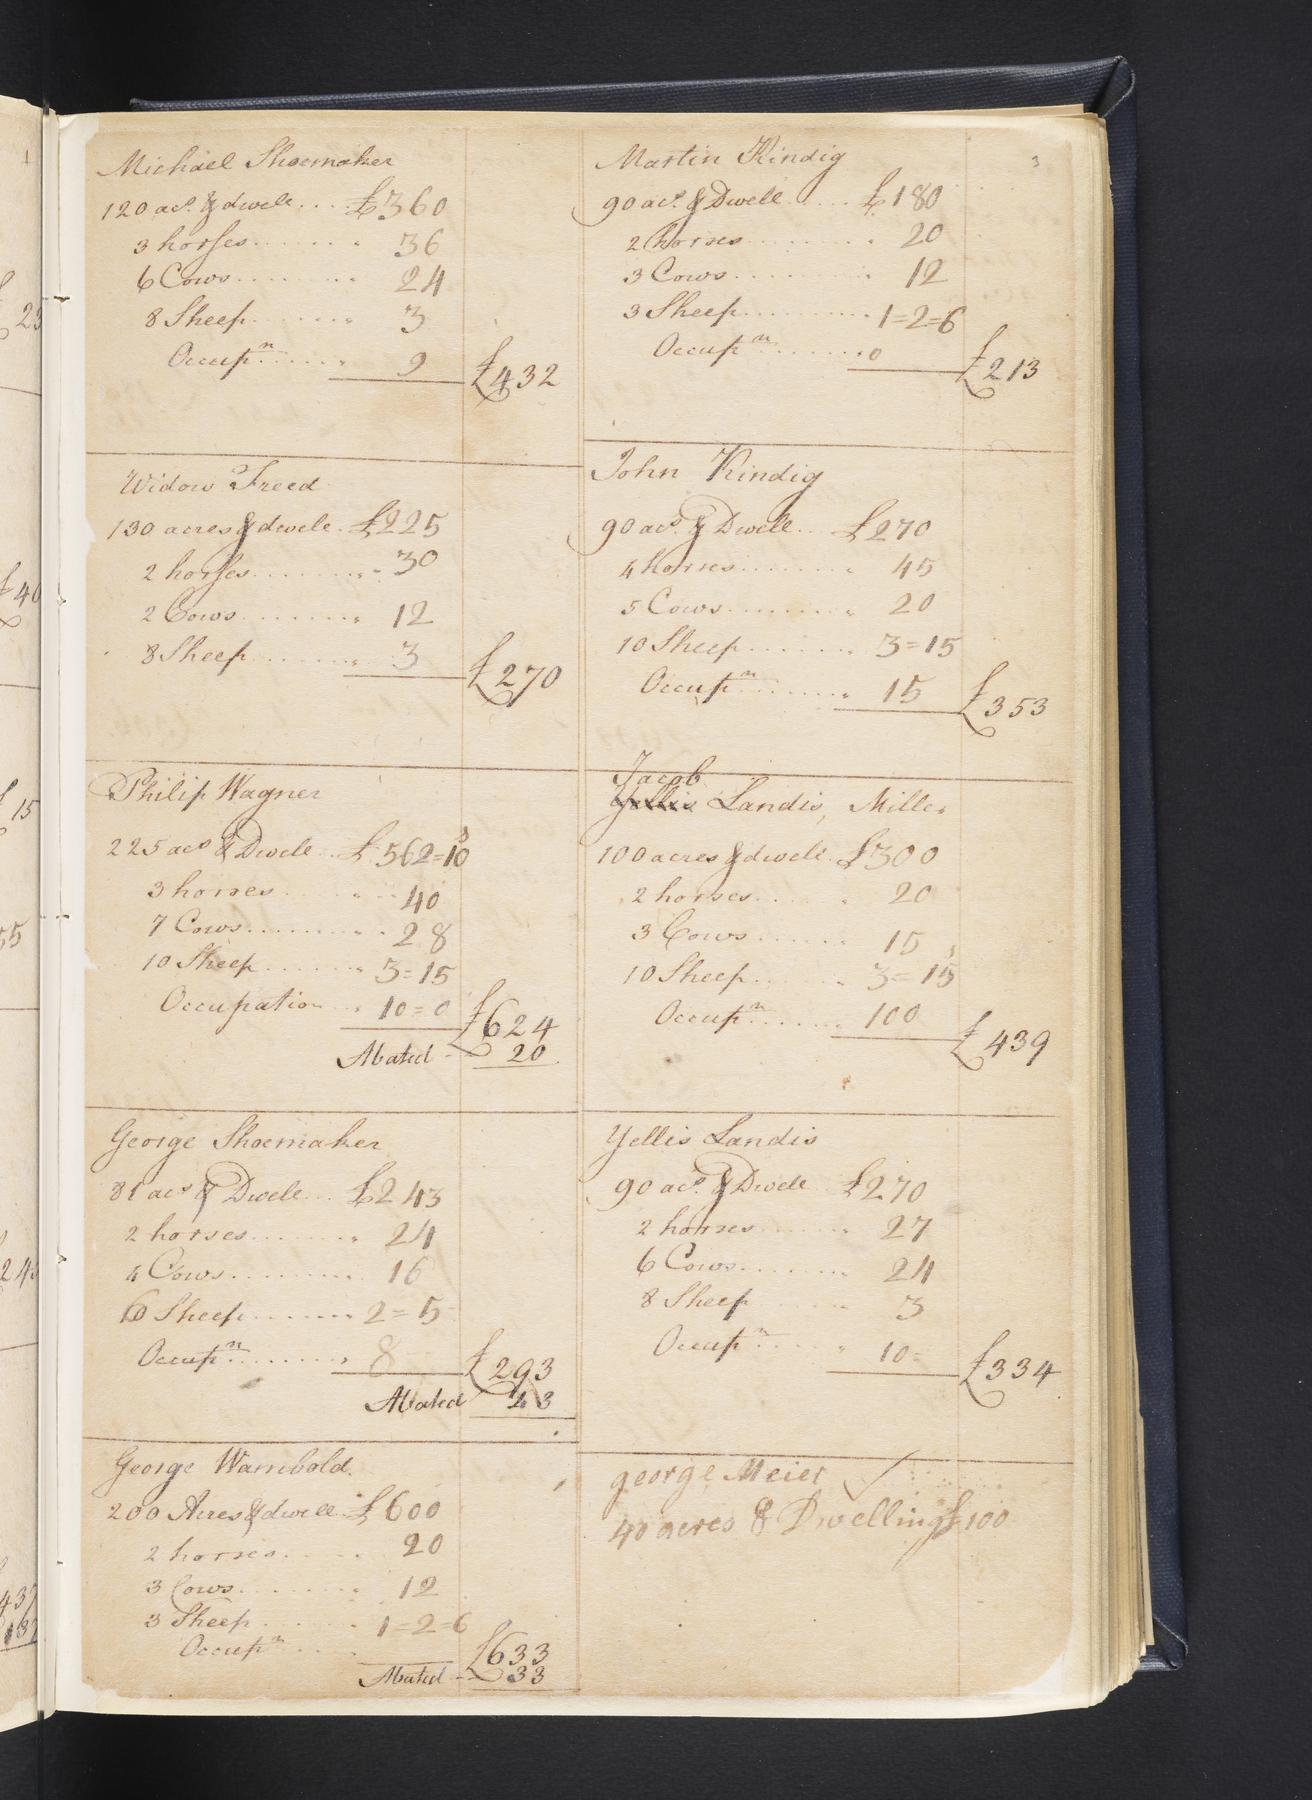 3
Michael Shoemaker
120 acs. & dwell.... £360
3 horses........ 36
6 Cows......... 24
8 Sheep........ 3
Occupn....... 9 £432
Widow Freed
130 acres & dwell. £225
2 horses......... 30
2 Cows.......... 12
8 Sheep......... 3 £270
Philip Wagner
225 acs & Dwell.. £562=10s
3 horses...... 40
7 Cows.......... 28
10 Sheep........ 3=15
Occupation.. 10=0 £624
Abated - 20
George Shoemaker
81 acs & Dwell... £243
2 horses........ 24
4 Cows.......... 16
6 Sheep........ 2=5
Occupn......... 8 £293
Abated 43
George Wambold.
200 Acres & dwell. £600
2 horses...... 20
3 Cows......... 12
3 Sheep....... 1=2=6
Occupn.... £633
Abated - 33
Martin Kindig
90 acs. & Dwell..... £180
2 horses.......... 20
3 Cows........... 12
3 Sheep.......... 1=2=6
Occupn........ 0 £213
John Kindig
90 acs. & Dwell... £270
4 horses......... 45
5 Cows.......... 20
10 Sheep....... 3=15
Occupn........ 15 £353
Jacob
Yellis Landis, Miller
100 acres & dwell. £300
2 horses...... 20
3 Cows...... 15
10 Sheep...... 3=15s
Occupn....... 100 £439
Yellis Landis
90 acs. & Dwell.. £270
2 horses....... 27
6 Cows........ 24
8 Sheep...... 3
Occupn..... 10= £334
george Meier ✓
40 acres & Dwelling £100